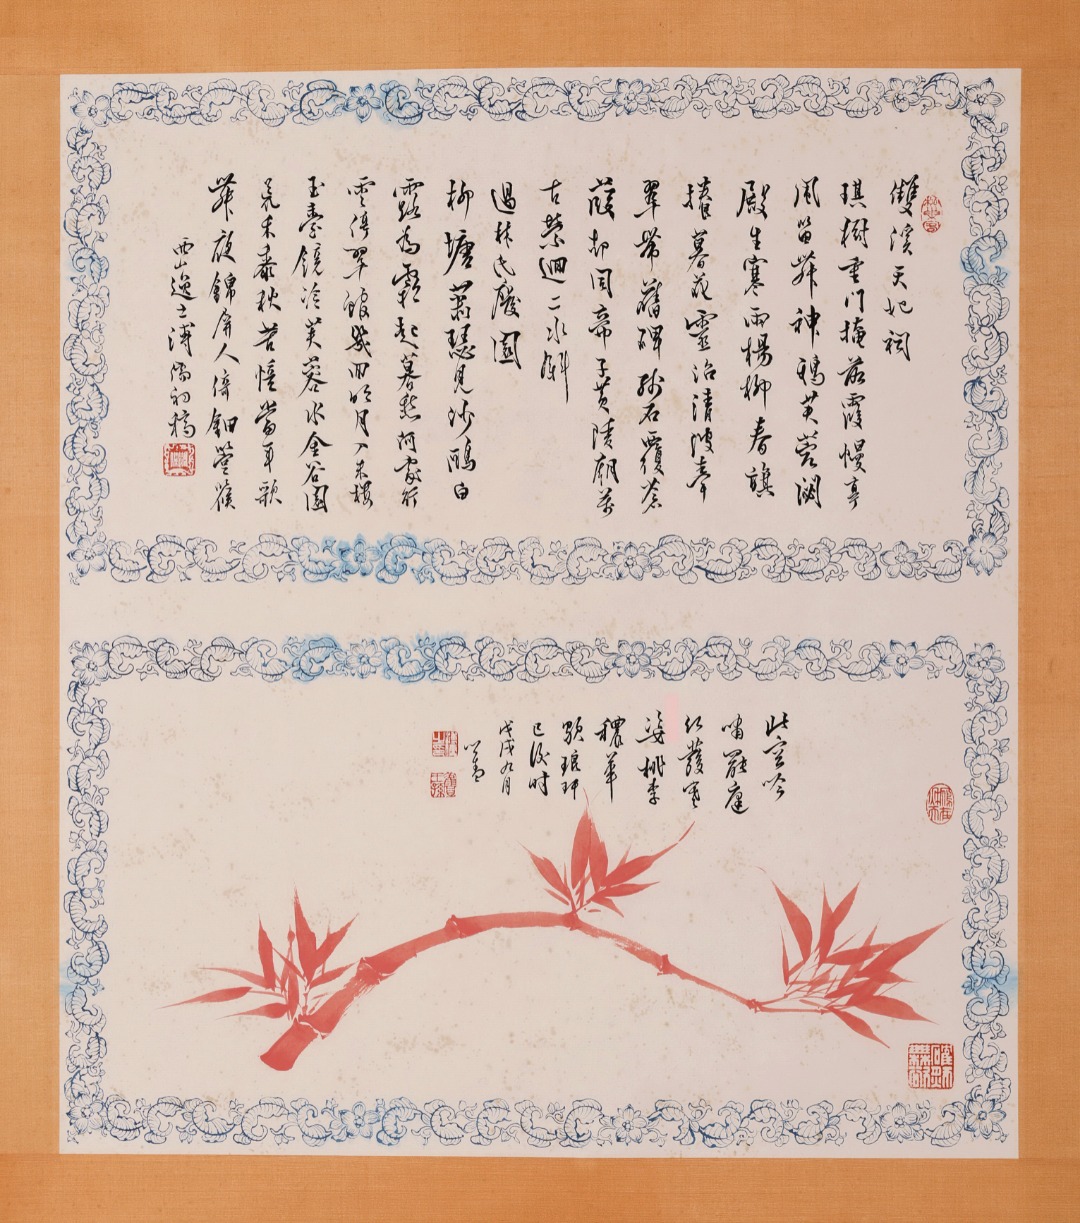 雙溪天妃祠
琪樹重門掩落霞幔亭
風笛舞神鴉芙蓉闕
殿生寒雨楊柳春旗
暮花靈沼清陂牽
翠帶舊碑砂石覆蒼
葭却同帝子黃陵廟萬
古縈迴二水斜
過林氏廢園
柳塘蕭瑟見沙鷗白
露為霜起暮愁何處行
雲停翠館幾回明月入朱樓
玉臺鏡冷芙蓉水金谷園
荒禾黍秋苦憶當年歌
舞夜錦屏人倚鈿箜篌
西山逸士溥儒初稿
此空吟
嘯庭
紅
姿桃李
穠華
琅玕
已後時
戊戌九月
心畬